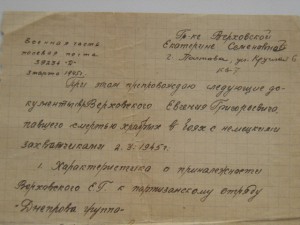 Военная часть
полевая почта
39236-В
3 марта 1945 г.
Гр-ке Верховской
Екатерине Семеновне
г. Полтава, ул. Крупской 6
кв-7
При этом препровождаю следующие до-
кументы Верховского Евгения Григорьевича,
павшего смертью храбрых в боях с немецкими
захватчиками 2.3.1945 г.
1. Характеристика о принадлежности
Верховского Е.Г к партизанскому отряду
"Днепрова группа"